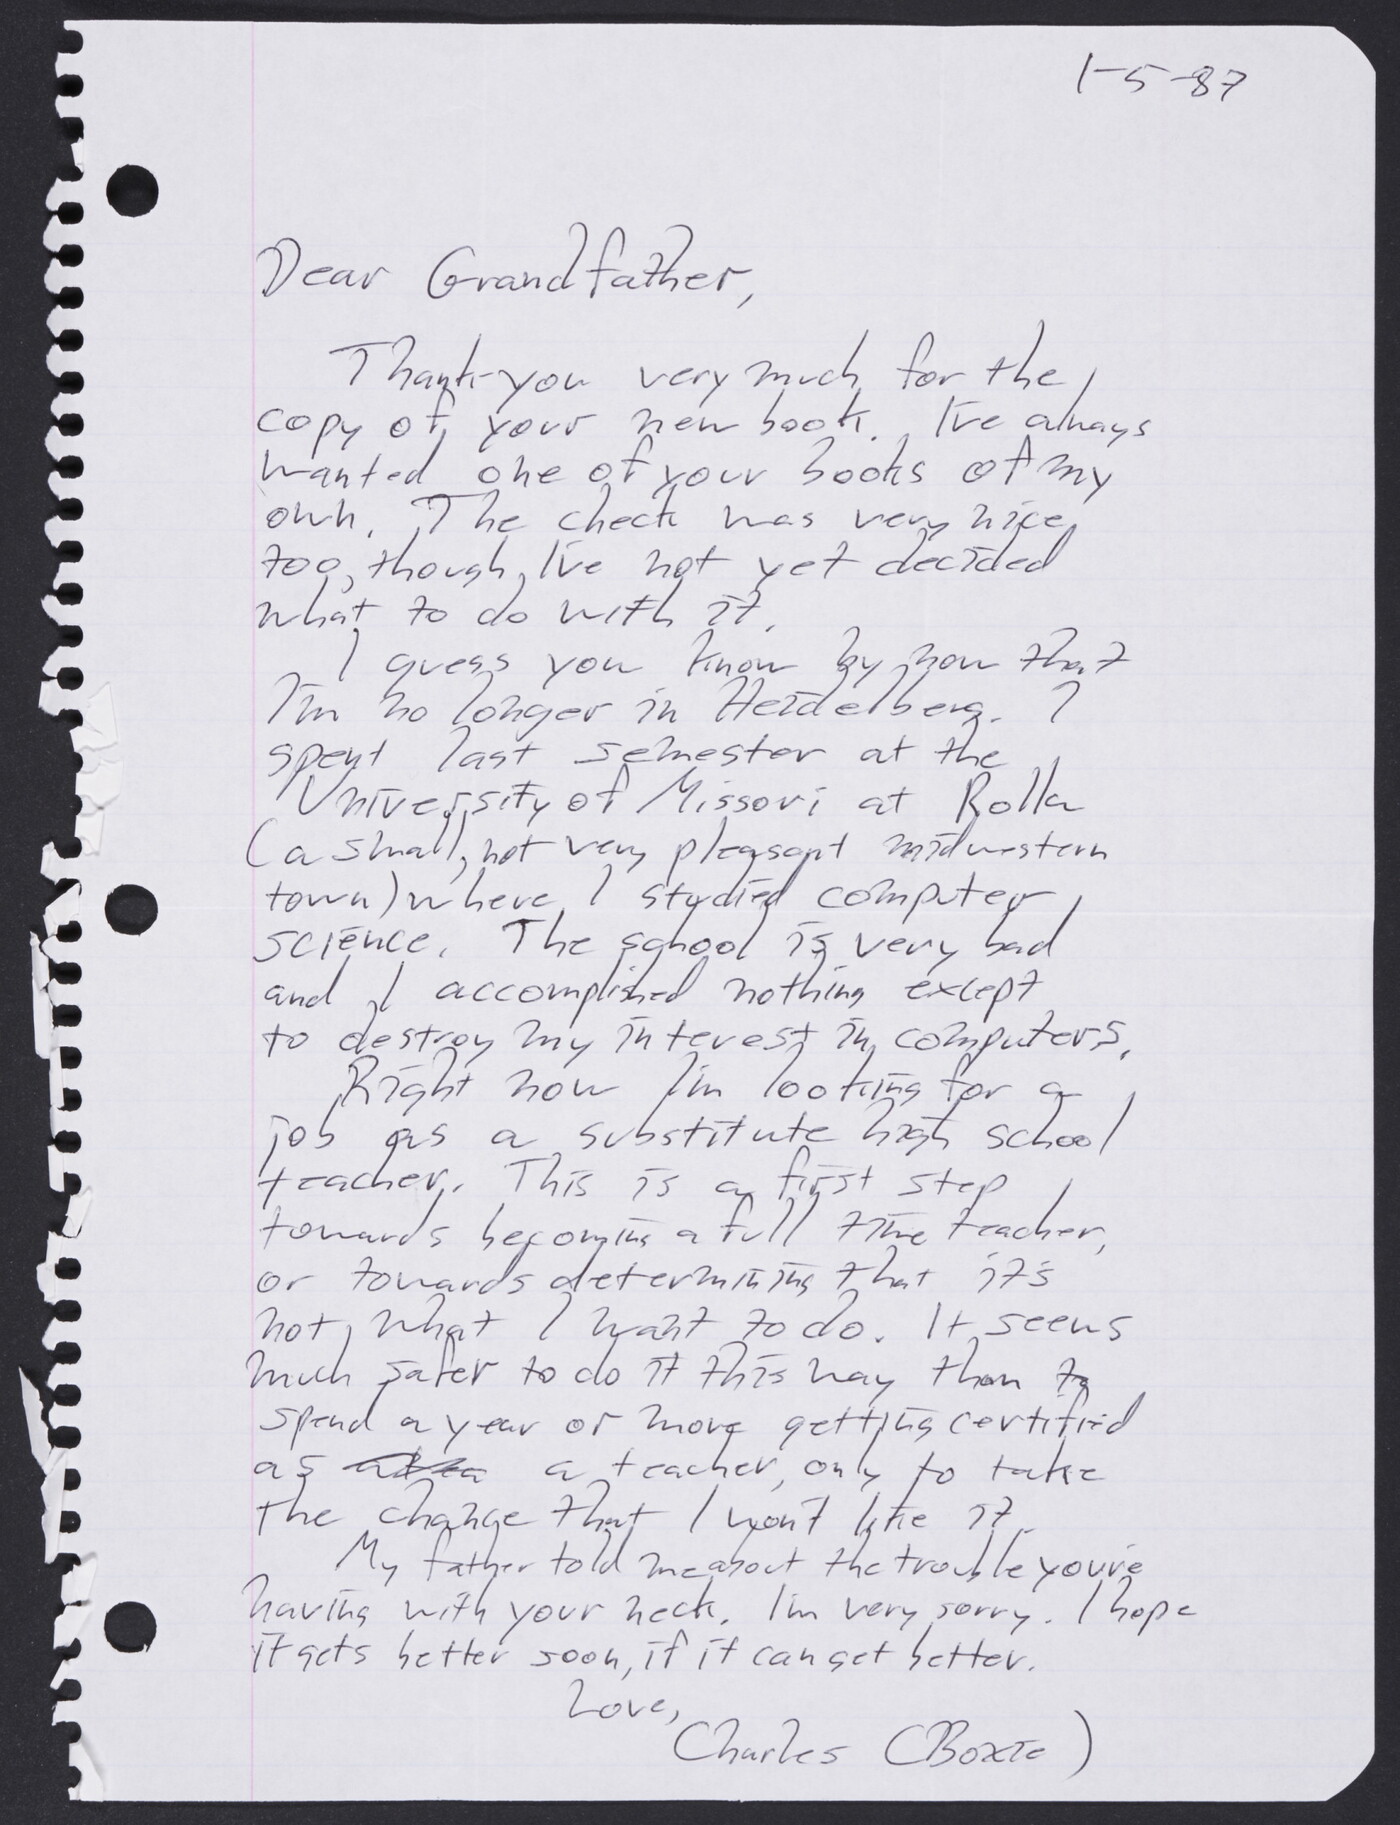 1-5-87
Dear Grandfather,
Thank-you very much for the
copy of your new book. I've always
wanted one of your books of my
own. The check was very nice
too, though I've not yet decided
what to do with it.
I guess you know by now that
I'm no longer in Heidelberg. I
spent last semester at the
University of Missori at Rolla
(a small, not very pleasant midwestern
town) where I studied computer
science. The school is very bad
and I accomplished nothing except
to destroy my interest in computers.
Right now I'm looking for a
job as a substitute high school
teacher. This is a first step
towards becoming a full time teacher,
or towards determining that it's
not what I want to do. It seems
much safer to do it this way than to
spend a year or more getting certified
as a teacher, only to take
the change that I won't like it.
My father told me about the trouble you're
having with your neck. I'm very sorry. I hope
it gets better soon, if it can get better.
Love,
Charles (Boxie)